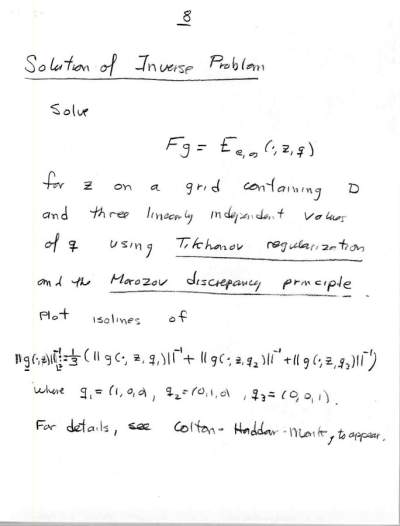 8
Solution of Inverse Problem
Solve
Fg = E_{e,∞}(·, z, q)
for z on a grid containing D
and three linearly independent values
of q using Tikhonov regularization
and the Morozov discrepancy principle.
Plot isolines of
||g(·,z)||^{-1} := 1/3 (||g(·, z, q_1)||^{-1} + ||g(·, z, q_2)||^{-1} + ||g(·, z, q_3)||^{-1})
where q_1 = (1, 0, 0), q_2 = (0, 1, 0), q_3 = (0, 0, 1).
For details, see Colton-Haddar-Monk, to appear.